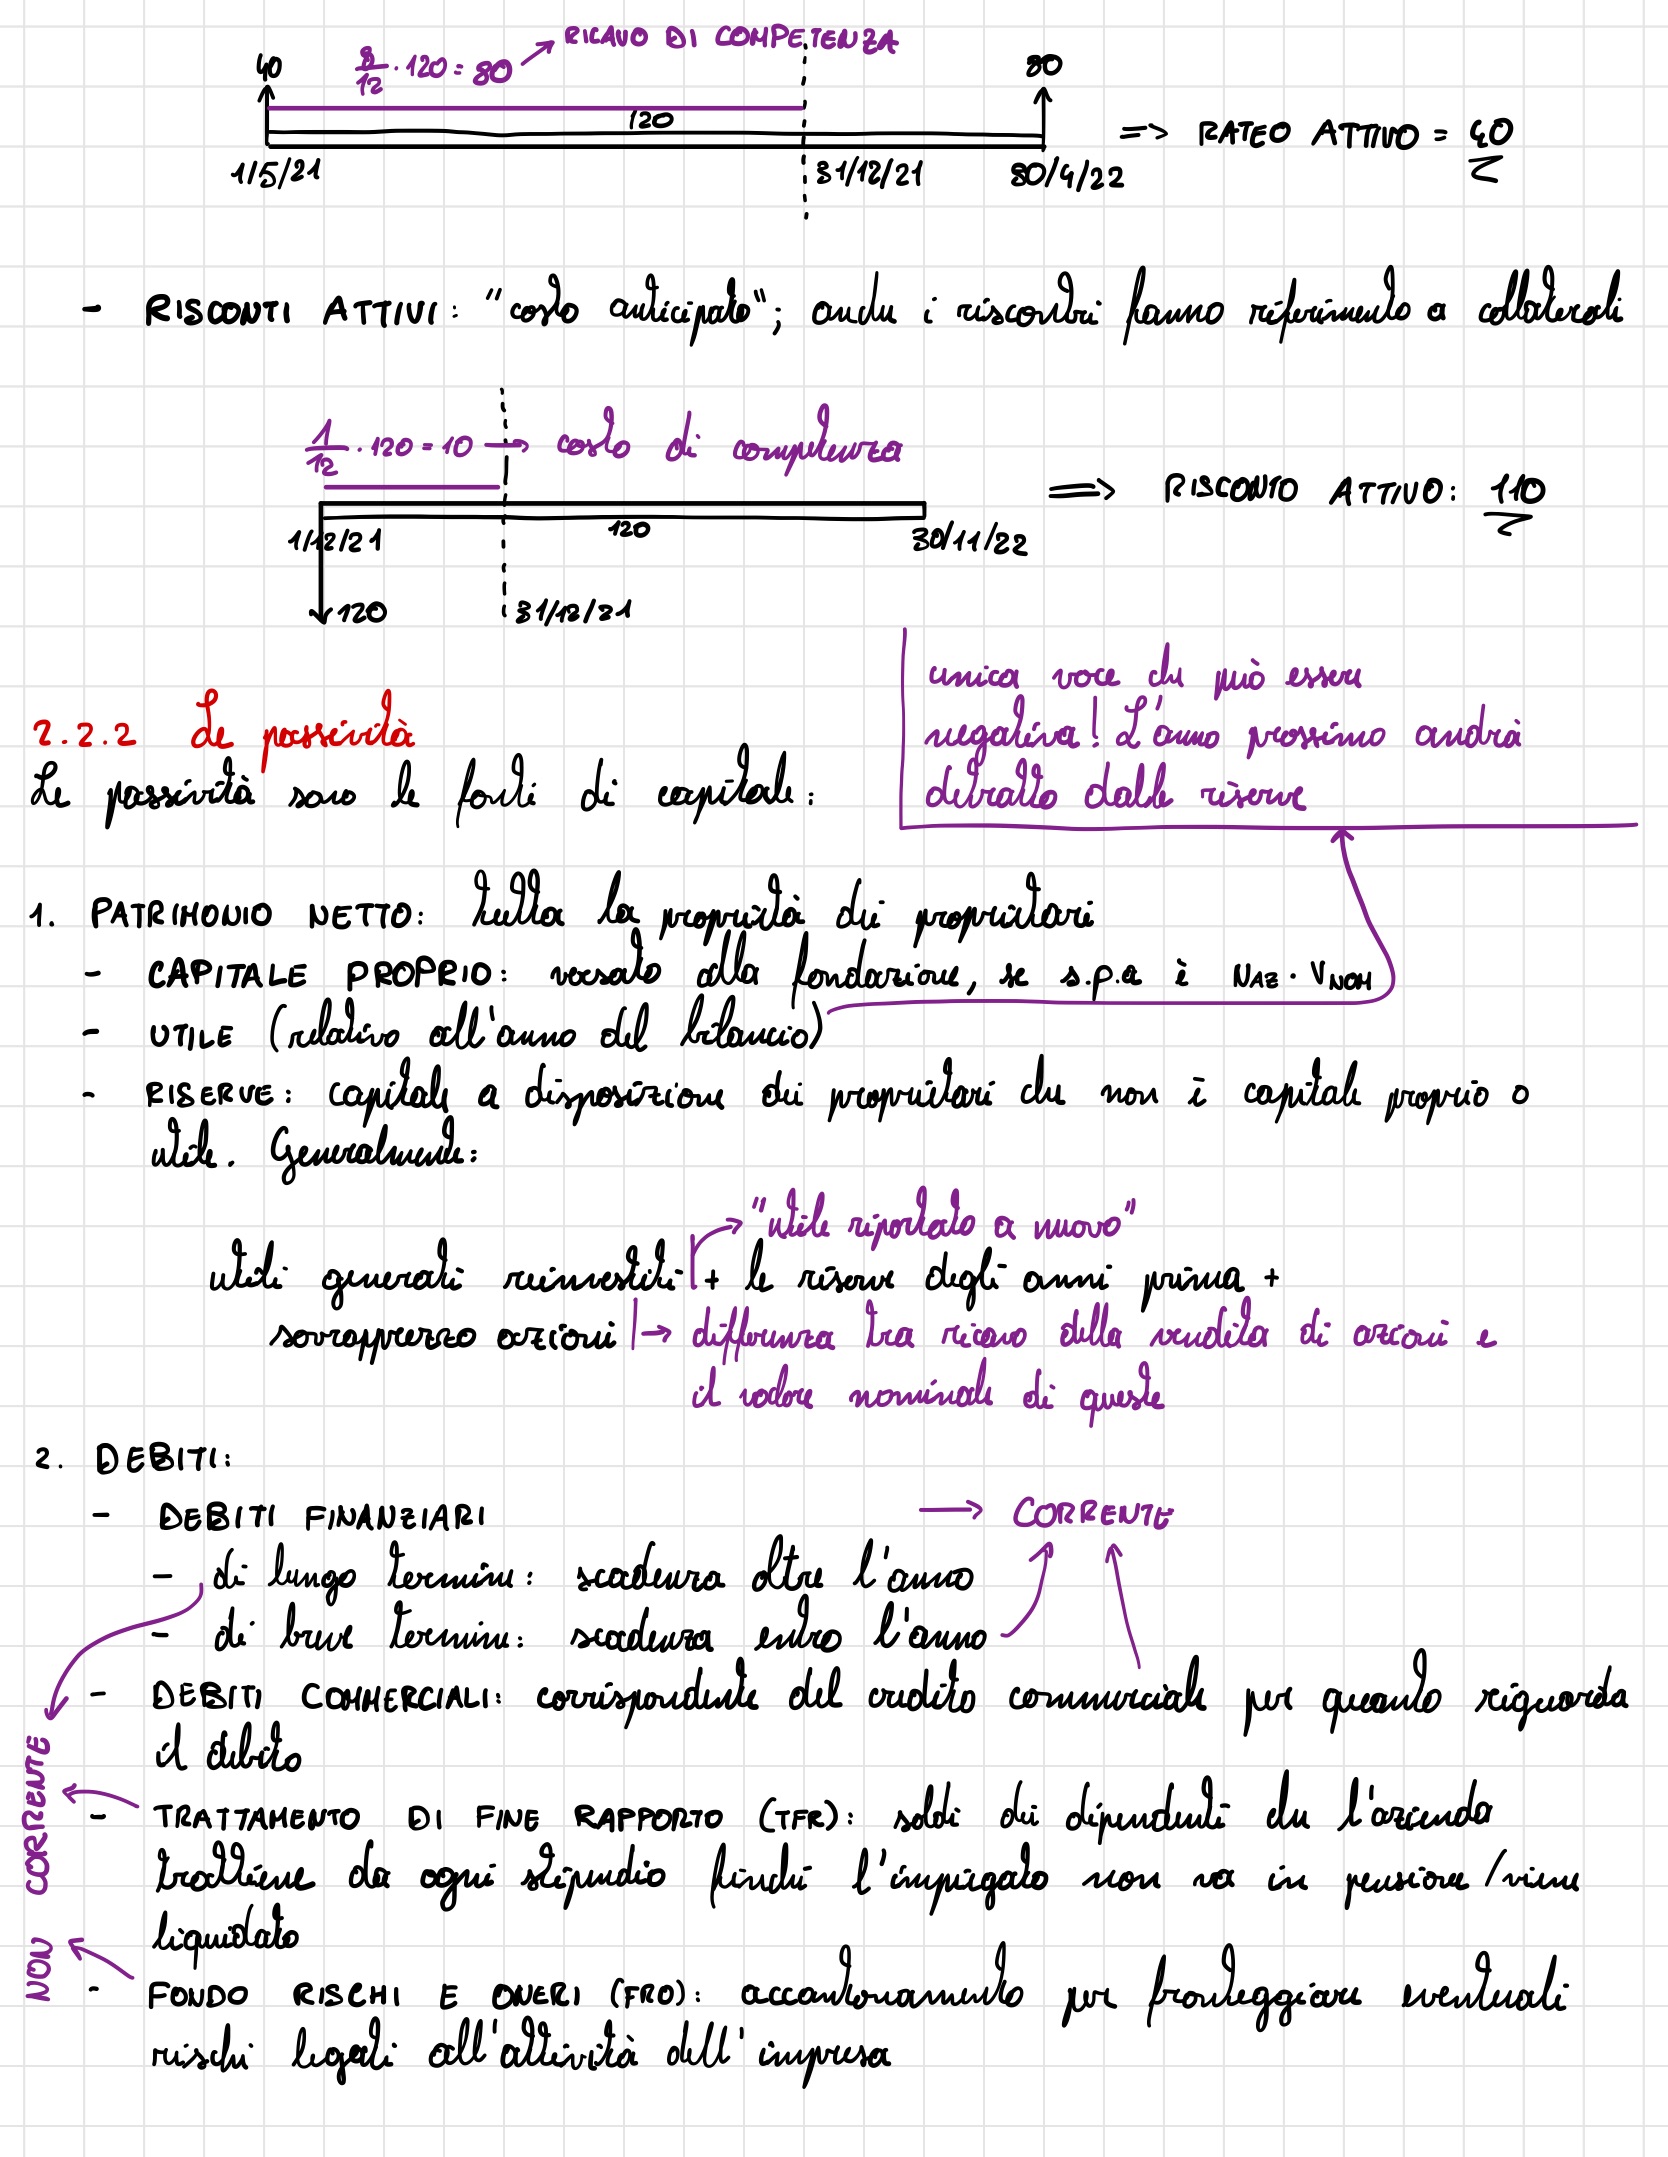 RICAVO DI COMPETENZA
40 8/12 · 120 = 80 80
120
=> RATEO ATTIVO = 40
1/5/21 31/12/21 30/4/22
- RISCONTI ATTIVI: "costo anticipato"; anche i riscontri fanno riferimento a collaterali
1/12 · 120 = 10 → costo di competenza
=> RISCONTO ATTIVO: 110
1/12/21 120 30/11/22
120 31/12/21
unica voce che può essere
negativa! L'anno prossimo andrà
detratto dalle riserve
2.2.2 Le passività
Le passività sono le fonti di capitale:
1. PATRIMONIO NETTO: tutta la proprietà dei proprietari
- CAPITALE PROPRIO: versato alla fondazione, se s.p.a è NAZ · VNOM
- UTILE (relativo all'anno del bilancio)
- RISERVE: capitale a disposizione dei proprietari che non è capitale proprio o
utile. Generalmente:
"utile riportato a nuovo"
utili generati reinvestiti + le riserve degli anni prima +
sovrapprezzo azioni → differenza tra ricavo della vendita di azioni e
il valore nominale di queste
2. DEBITI:
- DEBITI FINANZIARI → CORRENTE
- di lungo termine: scadenza oltre l'anno
- di breve termine: scadenza entro l'anno
- DEBITI COMMERCIALI: corrispondente del credito commerciale per quanto riguarda
il debito
- TRATTAMENTO DI FINE RAPPORTO (TFR): soldi dei dipendenti che l'azienda
trattiene da ogni stipendio finché l'impiegato non va in pensione/viene
liquidato
- FONDO RISCHI E ONERI (FRO): accantonamento per fronteggiare eventuali
rischi legati all'attività dell'impresa
NON CORRENTE